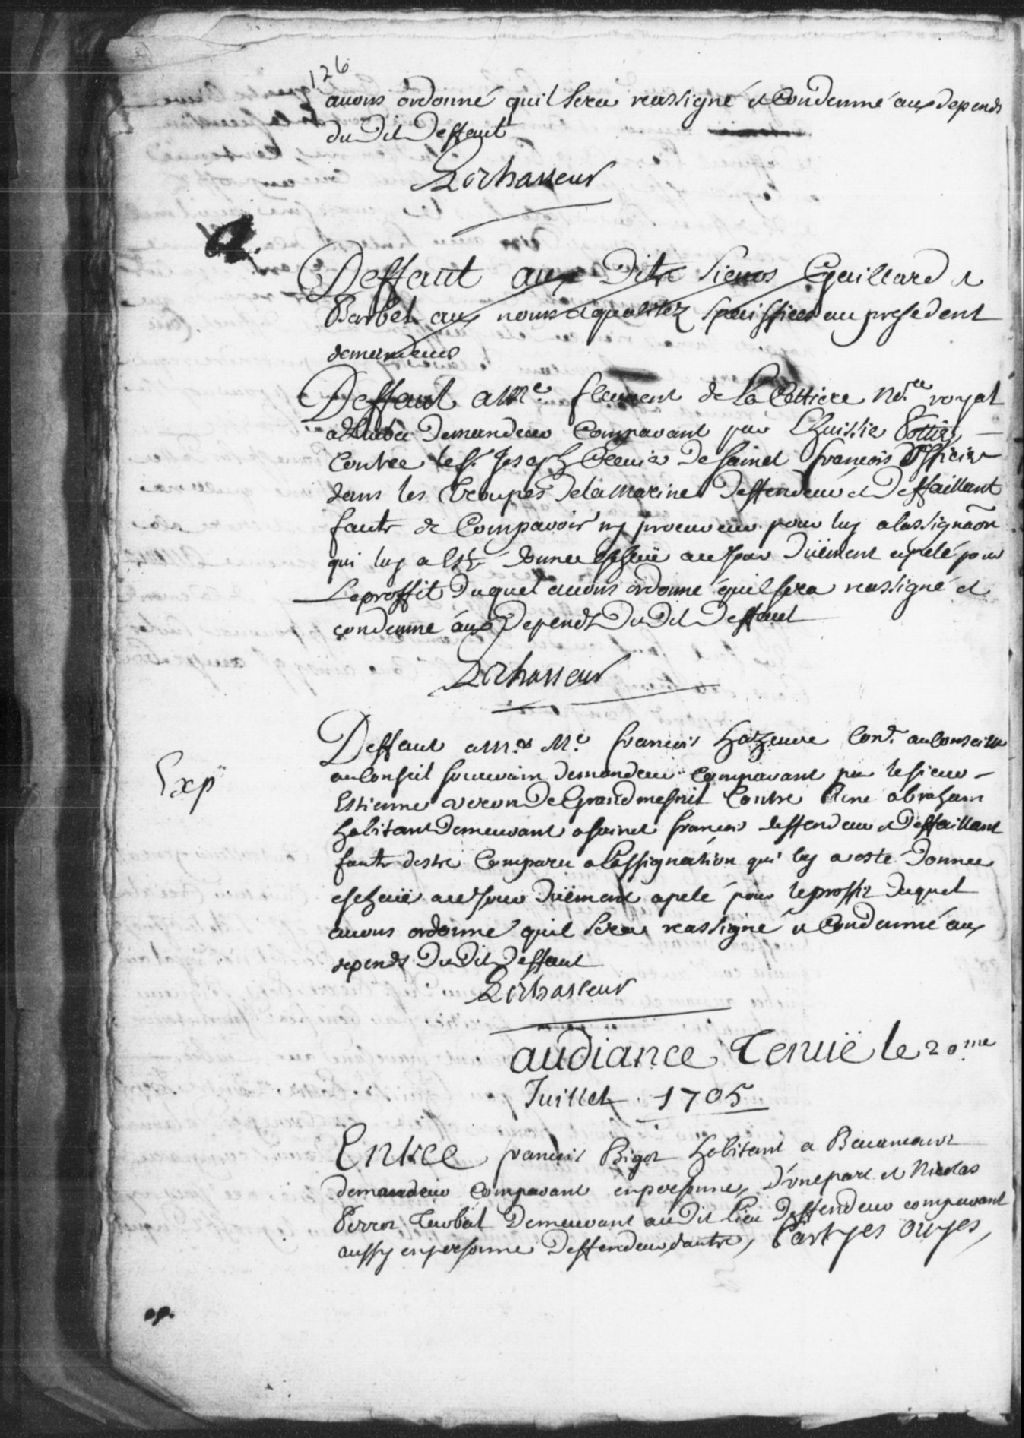 126
avons ordonné quil sera reassigné et Condemné aux depends
du Dit Deffaut
Lechasseur
Deffaut aux Dits Sieurs Gaillard et
Barbel aux noms et qualitez speciffiees au present
demandeurs
Deffaut a Me. de la Cettiere Nore. royal
demandeur Comparant par Lhuissier Pottier
Contre le Sr. Joseph de Sainct François officier
dans les troupes de la Marine deffendeur et Deffaillant
faute de Comparoir ny procureur pour luy a lassignaon
qui luy a esté donnée esch̅ue au jour düement apelé pour
Le proffit duquel avons ordonné quil sera reassigné et
condemné aux Depends du Dit Deffaut
Lechasseur
Exp
Deffaut a Me. François hazeure Conr. au Conseil
au Conseil souverain demandeur comparant par le sieur
Estienne veron de Grandmesnil Contre Rene abraham
habitant demeurant a sainct François deffendeur et Deffaillant
faute destre Comparu a Lassignation qui luy a esté Donnée
escheüe au jour düement apelé pour le proffit duquel
avons ordonné quil sera reassigné et Condemné aux
depends du Dit Deffaut
Lechasseur
audiance Tenuë le 20.me
Juillet 1705
Entre francois Bigot habitant a Becancour
demandeur Comparant en personne, D'une part et Nicolas
Perrot Turbal Demeurant au Dit lieu Deffendeur comparant
aussy en personne Deffendeur dautre, Partyes ouyes,